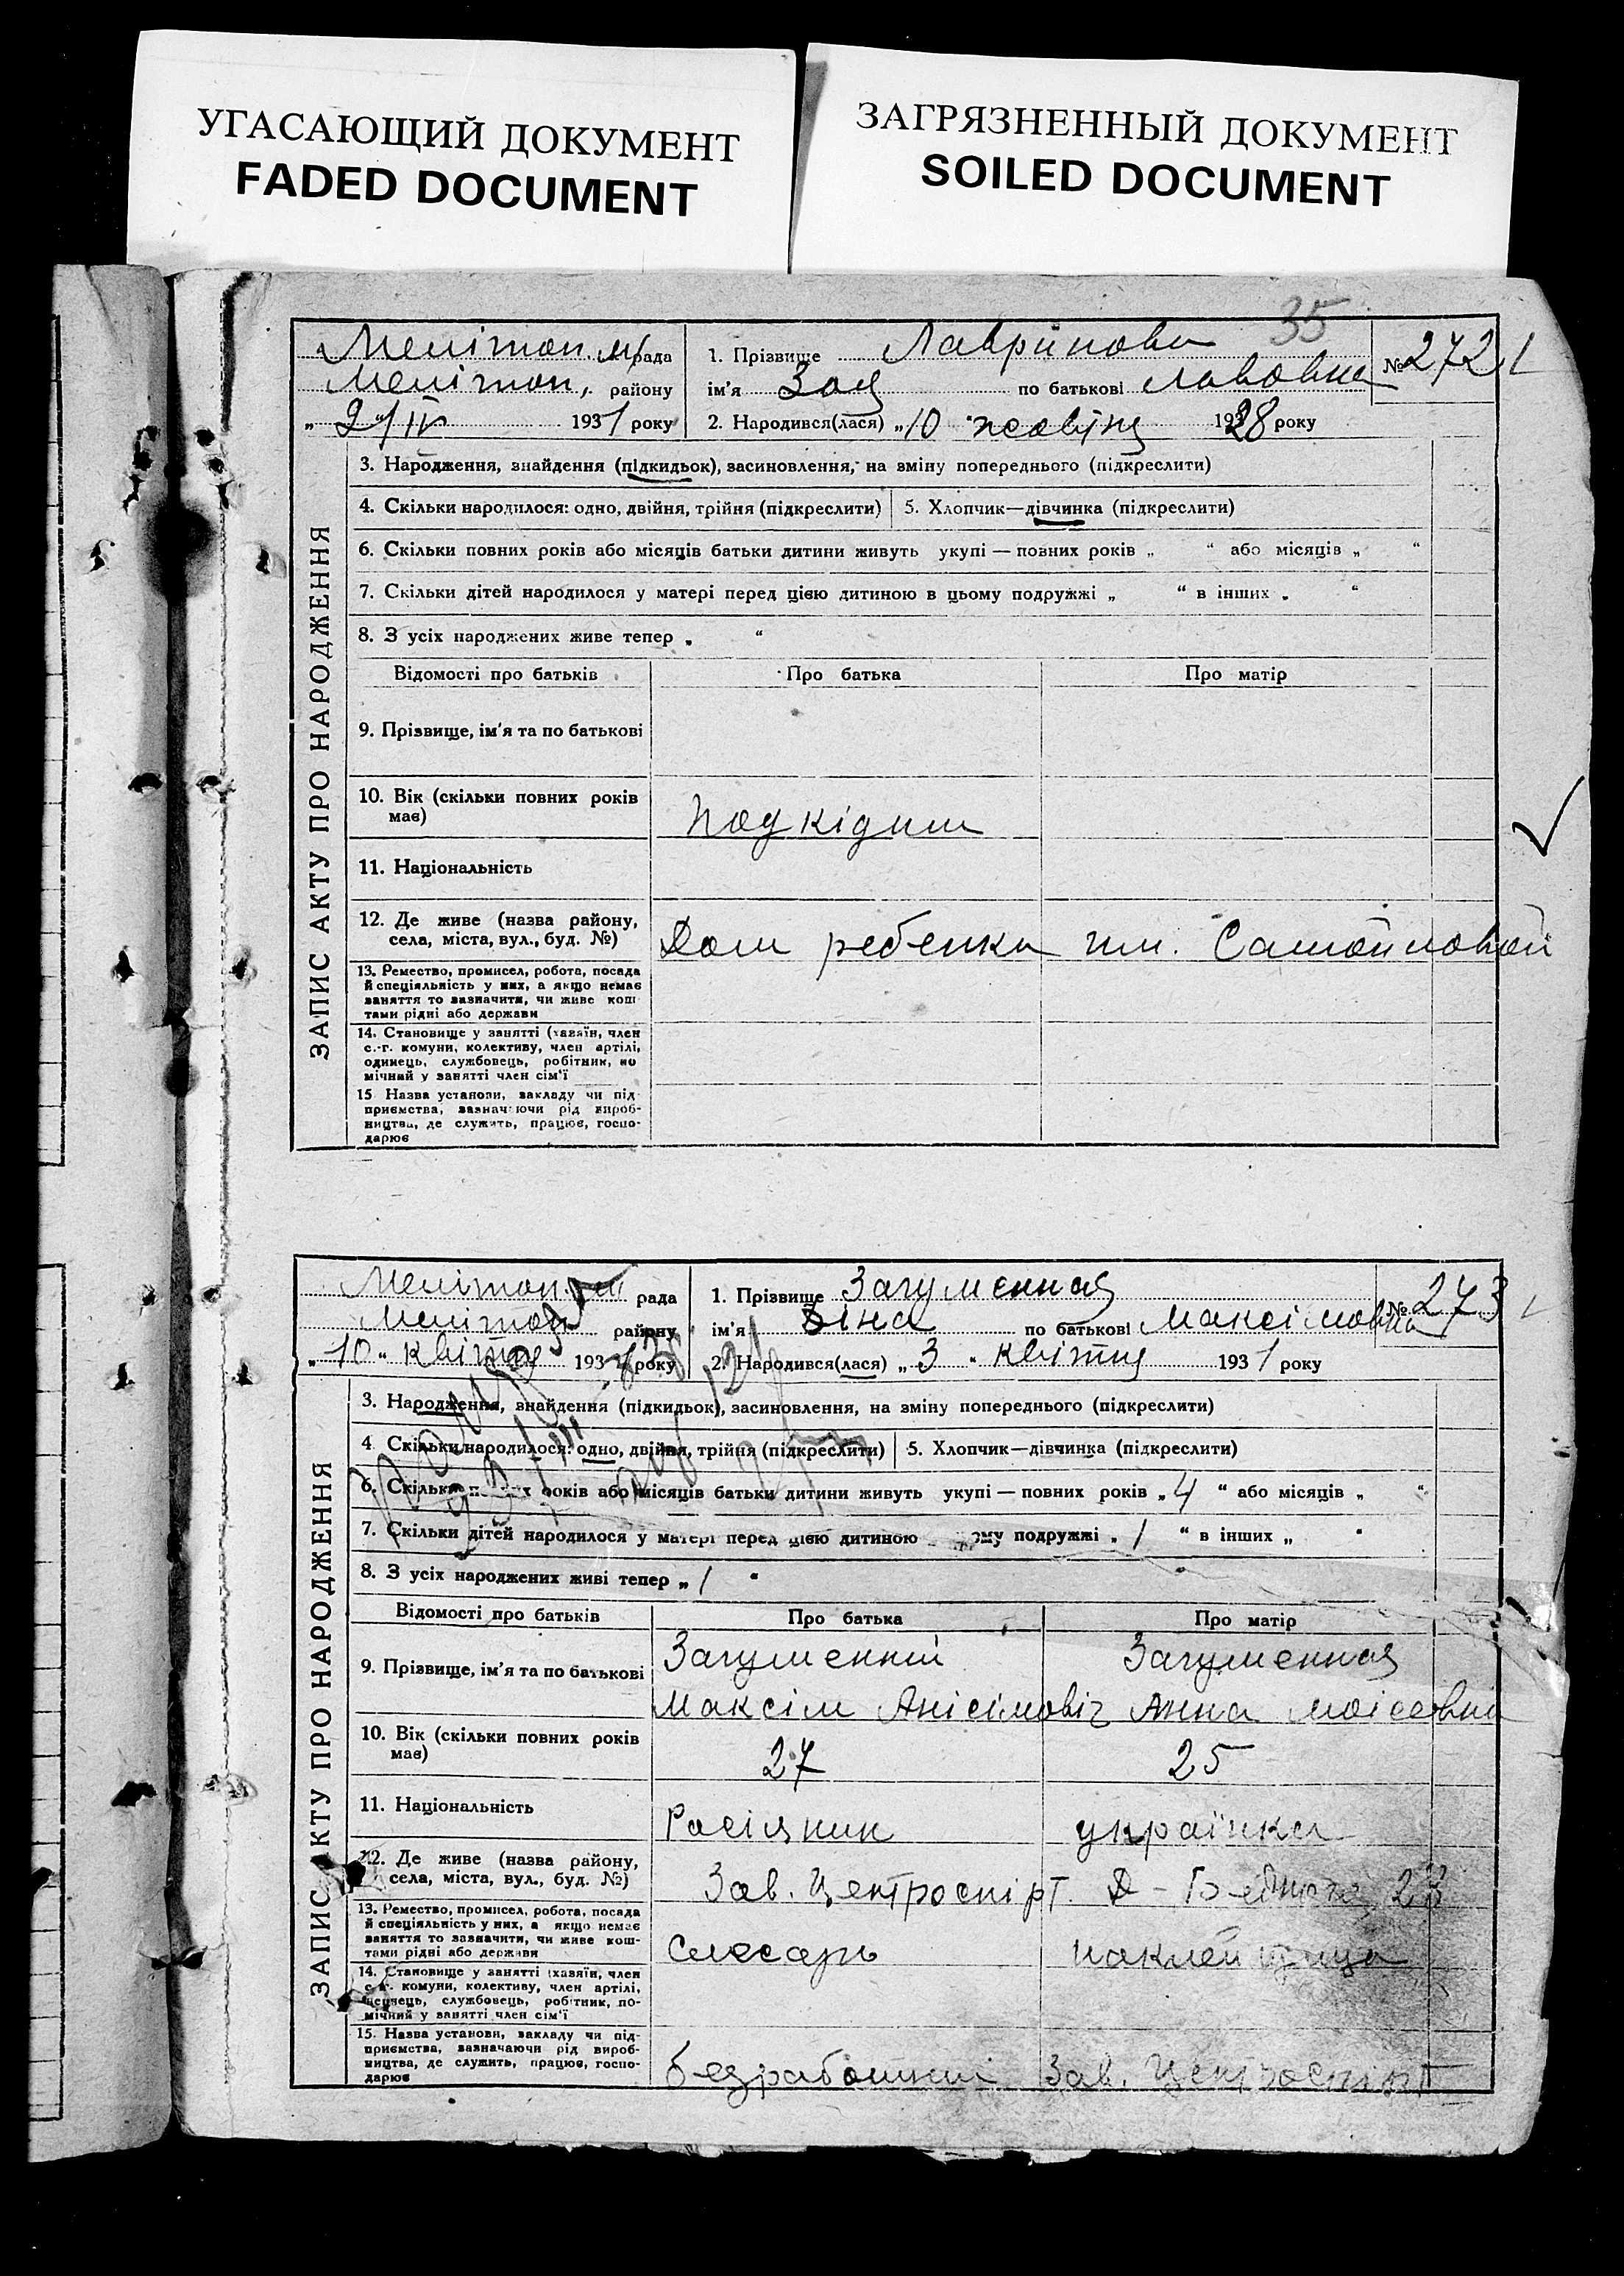 УГАСАЮЩИЙ ДОКУМЕНТ
FADED DOCUMENT
ЗАГРЯЗНЕННЫЙ ДОКУМЕНТ
SOILED DOCUMENT
35
Мелітоп. м/рада
Мелітоп. району
„ 9/IV 1931 року
1. Прізвище Лаврінова
ім'я Зоя по батькові Львовна
2. Народився(лася) „10 жовтня 1928 року
№ 272
ЗАПИС АКТУ ПРО НАРОДЖЕННЯ
3. Народження, знайдення (підкидьок), засиновлення, на зміну попереднього (підкреслити)
4. Скільки народилося: одно, двійня, трійня (підкреслити)
5. Хлопчик—дівчинка (підкреслити)
6. Скільки повних років або місяців батьки дитини живуть укупі — повних років „ “ або місяців „ “
7. Скільки дітей народилося у матері перед цією дитиною в цьому подружжі „ “ в інших „ “
8. З усіх народжених живе тепер „ “
Відомості про батьків Про батька Про матір
9. Прізвище, ім'я та по батькові
10. Вік (скільки повних років
має)
Подкідиш
11. Національність
12. Де живе (назва району,
села, міста, вул., буд. №)
Дом ребенка им. Самойловой
13. Ремество, промисел, робота, посада
й спеціяльність у них, а якщо немає
заняття то зазначити, чи живе кош
тами рідні або держави
14. Становище у занятті (хазяїн, член
с.-г. комуни, колективу, член артілі,
одинець, службовець, робітник, по
мічний у занятті член сім'ї
15 Назва установи, закладу чи під
приємства, зазначаючи рід вироб-
ництва, де служить, працює, госпо-
дарює
Мелітоп. рада
Мелітоп. району
„ 10 “ квітня 1931 року
1. Прізвище Загуменная
ім'я Зіна по батькові Максімовна
2. Народився(лася) „ 3 “ квітня 1931 року
№ 273
ЗАПИС АКТУ ПРО НАРОДЖЕННЯ
3. Народження, знайдення (підкидьок), засиновлення, на зміну попереднього (підкреслити)
4 Скільки народилося: одно, двійня, трійня (підкреслити)
5. Хлопчик—дівчинка (підкреслити)
6. Скільки років або місяців батьки дитини живуть укупі — повних років „ 4 “ або місяців „ “
7. Скільки дітей народилося у матері перед цією дитиною подружжі „ 1 “ в інших „ “
8. З усіх народжених живі тепер „ 1 “
Відомості про батьків Про батька Про матір
9. Прізвище, ім'я та по батькові
Загуменний Загуменная
Максім Анісімовіч Анна Моісеевна
10. Вік (скільки повних років
має)
27 25
11. Національність
Росіянин українка
12. Де живе (назва району,
села, міста, вул., буд. №)
Зав. Центроспірт. Д-Бедного
13. Ремество, промисел, робота, посада
й спеціяльність у них, а якщо немає
заняття то зазначити, чи живе кош-
тами рідні або держави
Слесарь наклейщица
14. Становище у занятті (хазяїн, член
с.-г. комуни, колективу, член артілі,
одинець, службовець, робітник, по-
мічний у занятті член сім'ї
15. Назва установи, закладу чи під-
приємства, зазначаючи рід вироб-
ництва, де служить, працює, госпо-
дарює
безработний Зав. Центроспірт